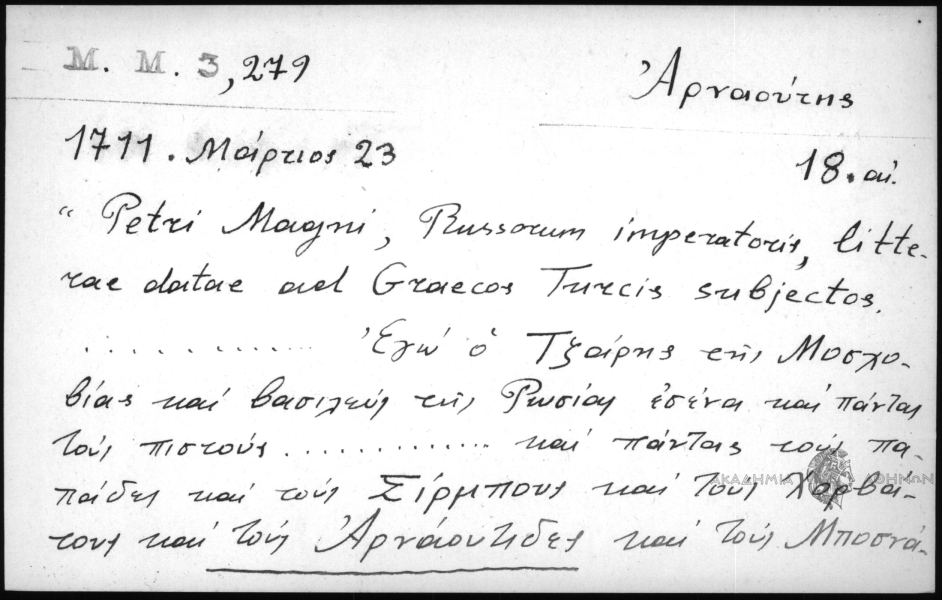 Μ. Μ. 3,279
Ἀρναούτης
1711. Μάρτιος 23
18. αἰ.
“ Petri Magni, Russorum imperatoris, litte-
rae datae ad Graecos Turcis subjectos.
.............. Ἐγώ ὁ Τζάρης τῆς Μοσχο-
βίας καί βασιλεύς τῆς Ρωσίας ἐσένα καί πάντας
τούς πιστούς .............. καί πάντας τούς πα-
πάδες καί τούς Σίρμπους καί τούς Χαρβά-
τους καί τούς Ἀρνάουτιδες καί τούς Μποσνά-
ΑΚΑΔΗΜΙΑ ΑΘΗΝΩΝ